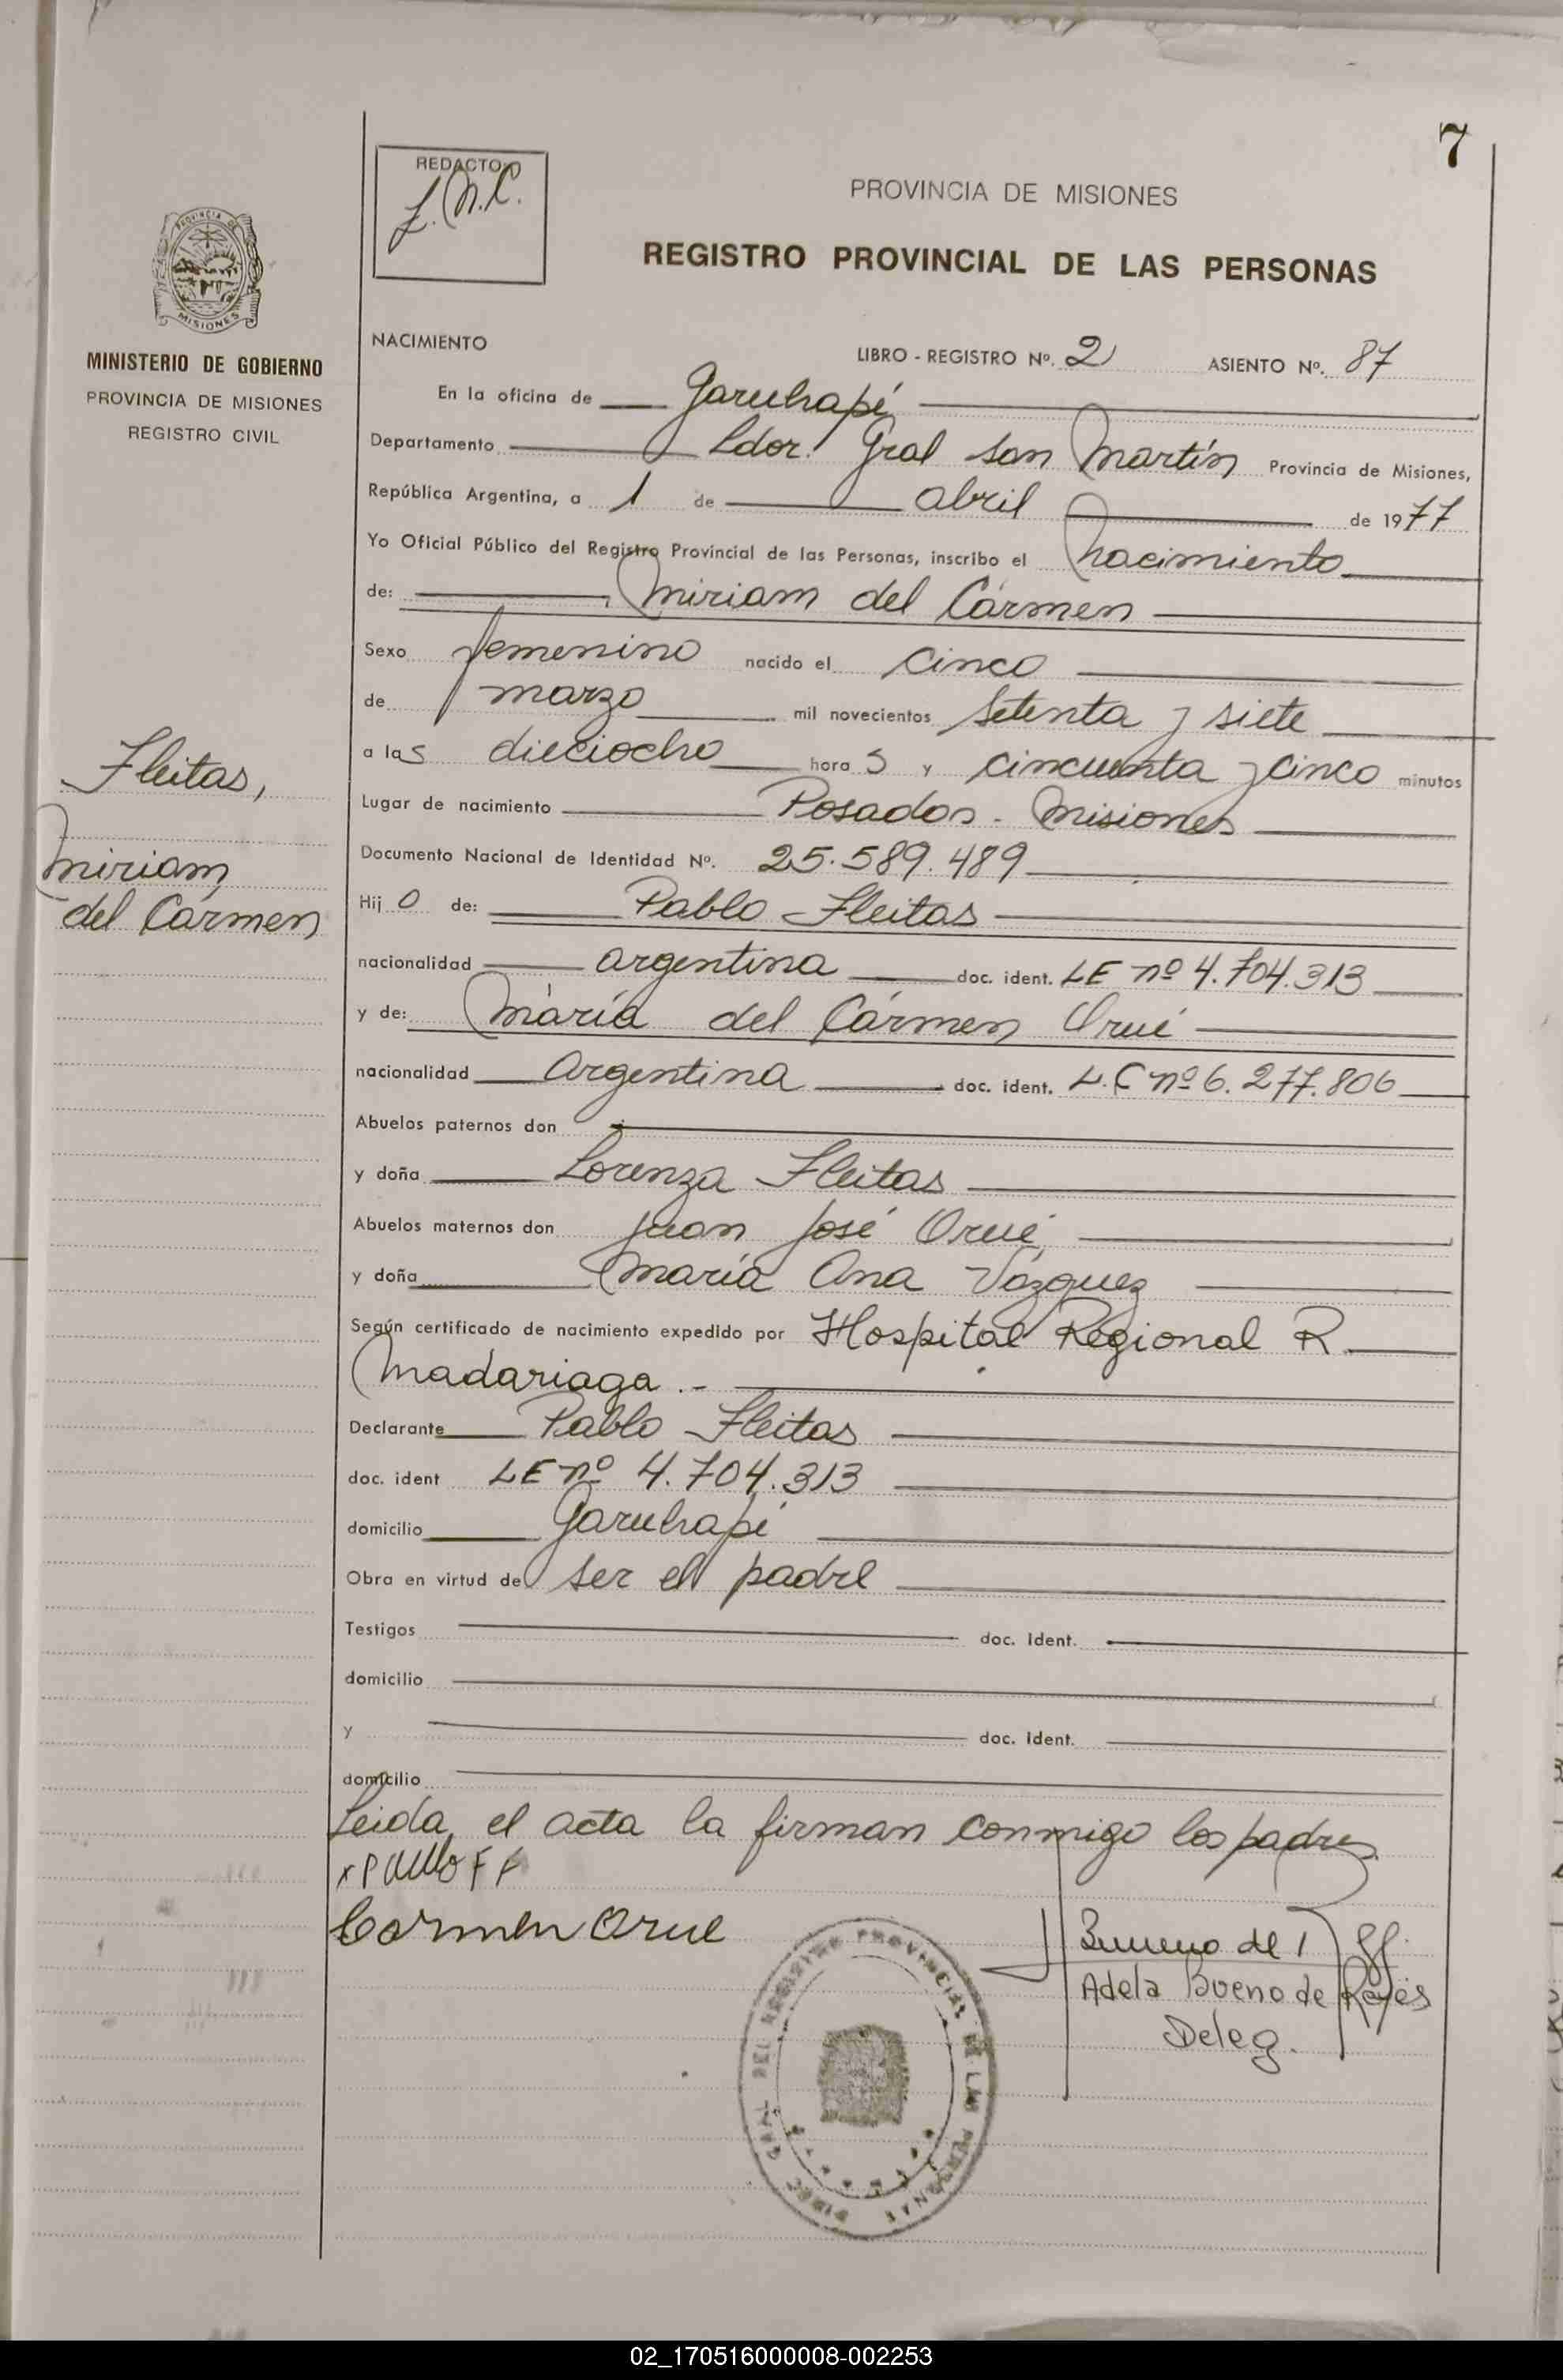 7
REDACTOR
PROVINCIA DE MISIONES
REGISTRO PROVINCIAL DE LAS PERSONAS
PROVINCIA DE
MISIONES
MINISTERIO DE GOBIERNO
PROVINCIA DE MISIONES
REGISTRO CIVIL
NACIMIENTO
LIBRO - REGISTRO Nº. 2 ASIENTO Nº. 87
En la oficina de Garuhapé
Departamento Ldor. Gral San Martín Provincia de Misiones,
República Argentina, a 1 de abril de 1977
Yo Oficial Público del Registro Provincial de las Personas, inscribo el nacimiento
de: Miriam del Cármen
Sexo femenino nacido el cinco
de marzo mil novecientos setenta y siete
a las dieciocho horas y cincuenta y cinco minutos
Fleitas,
Miriam
del Cármen
Lugar de nacimiento Posadas - Misiones
Documento Nacional de Identidad Nº. 25.589.489
Hij o de: Pablo Fleitas
nacionalidad argentina doc. ident. LE nº 4.704.313
y de: María del Cármen Orué
nacionalidad argentina doc. ident. L.C nº 6.277.806
Abuelos paternos don
y doña Lorenza Fleitas
Abuelos maternos don Juan José Orué
y doña María Ana Vázquez
Según certificado de nacimiento expedido por Hospital Regional R
Madariaga.-
Declarante Pablo Fleitas
doc. ident LE nº 4.704.313
domicilio Garuhapé
Obra en virtud de ser el padre
Testigos doc. ident.
domicilio
y doc. ident.
domicilio
Leida el acta la firman conmigo los padres
Carmen Orue
Adela Bueno de Reyes
Deleg.
DEL REGISTRO PROVINCIAL DE LAS PERSONAS
02_170516000008-002253